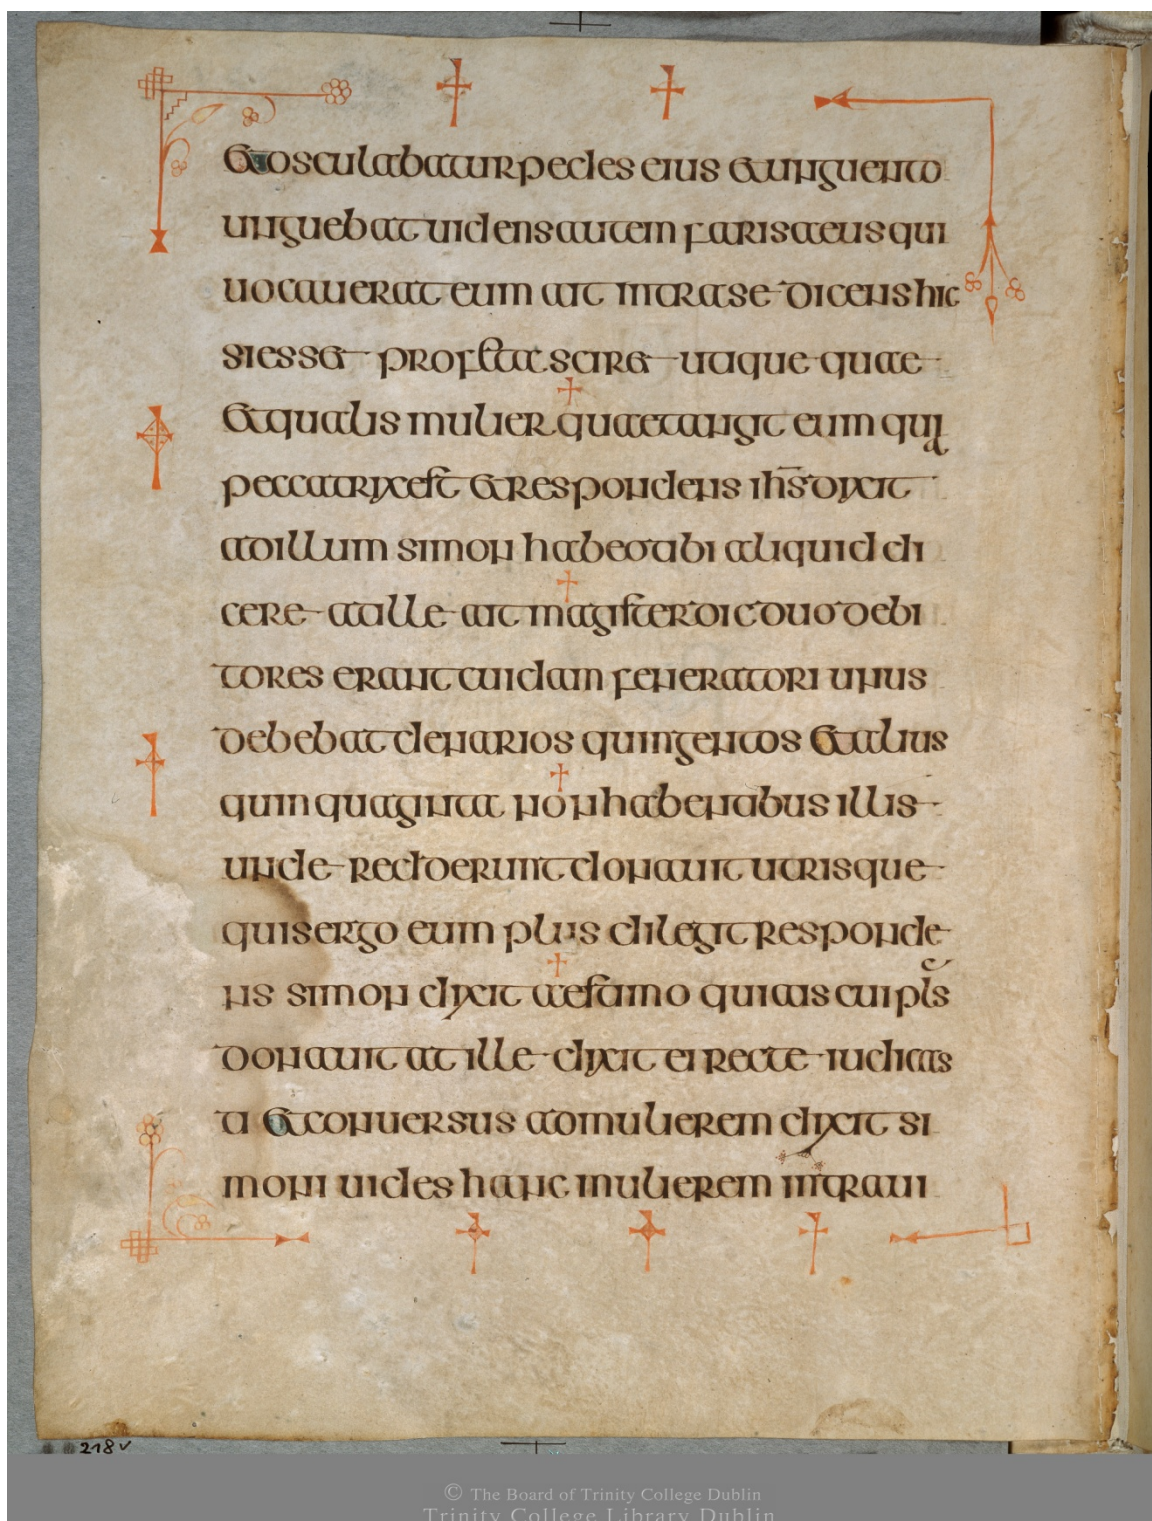 et osculabatur pedes eius et unguento
unguebat uidens autem farisaeus qui
uocauerat eum ait intra se dicens hic
si esset profeta sciret utique quae
et qualis mulier quae tangit eum quia
peccatrix est et respondens ihs dixit
ad illum simon habeo tibi aliquid di
cere at ille ait magister dic duo debi
tores erant cuidam feneratori unus
debebat denarios quingentos et alius
quinquaginta non habentibus illis
unde redderunt donauit utrisque
quis ergo eum plus dilegit responde
ns simon dixit aestimo quia is cui pls
donauit at ille dixit ei recte iudicas
ti et conuersus ad mulierem dixit si
moni uides hanc mulierem intraui
218v
© The Board of Trinity College Dublin
Trinity College Library Dublin